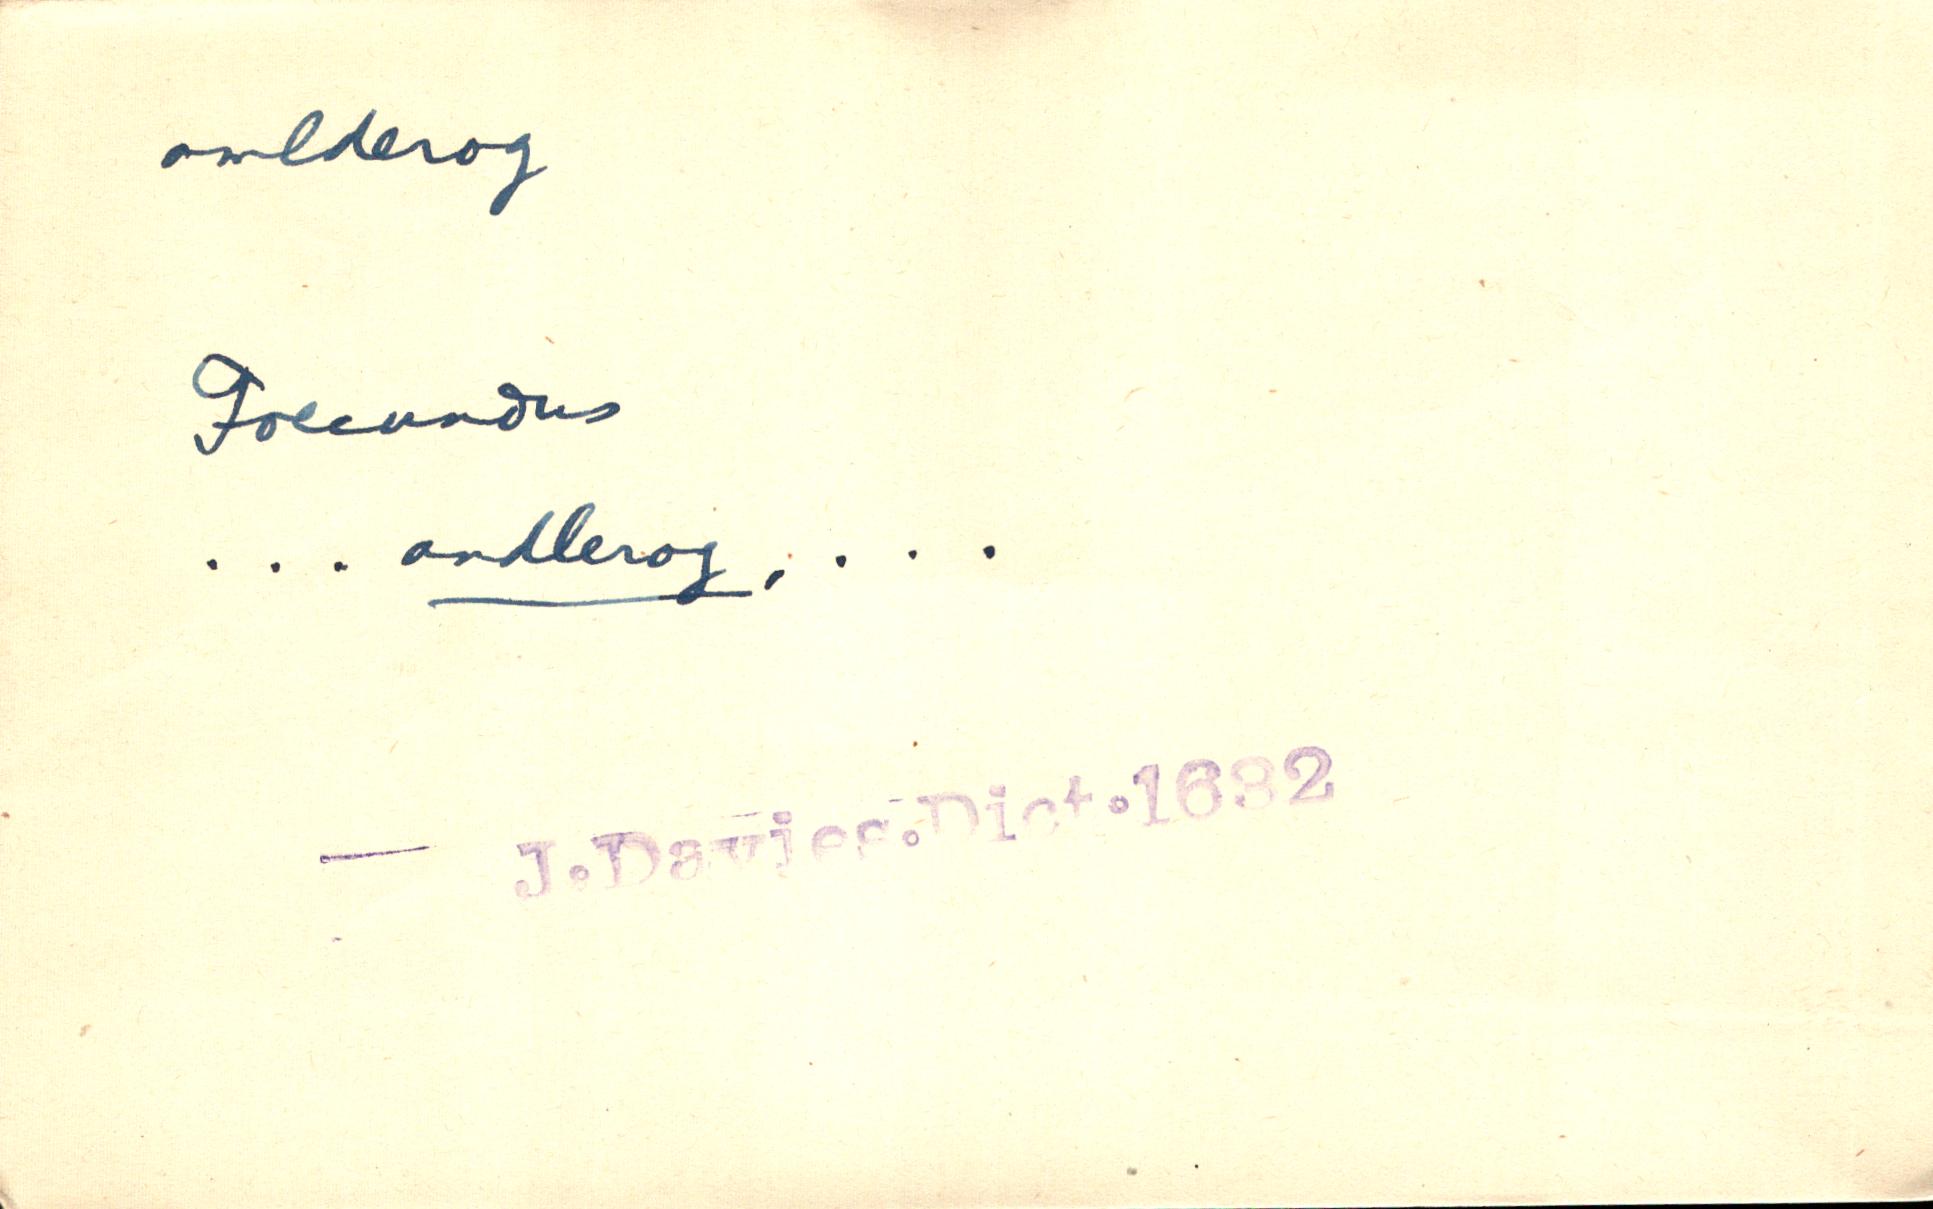 amlderog
Foecundus
. . . amdlerog, . . .
— J.Davies.Dict.1632